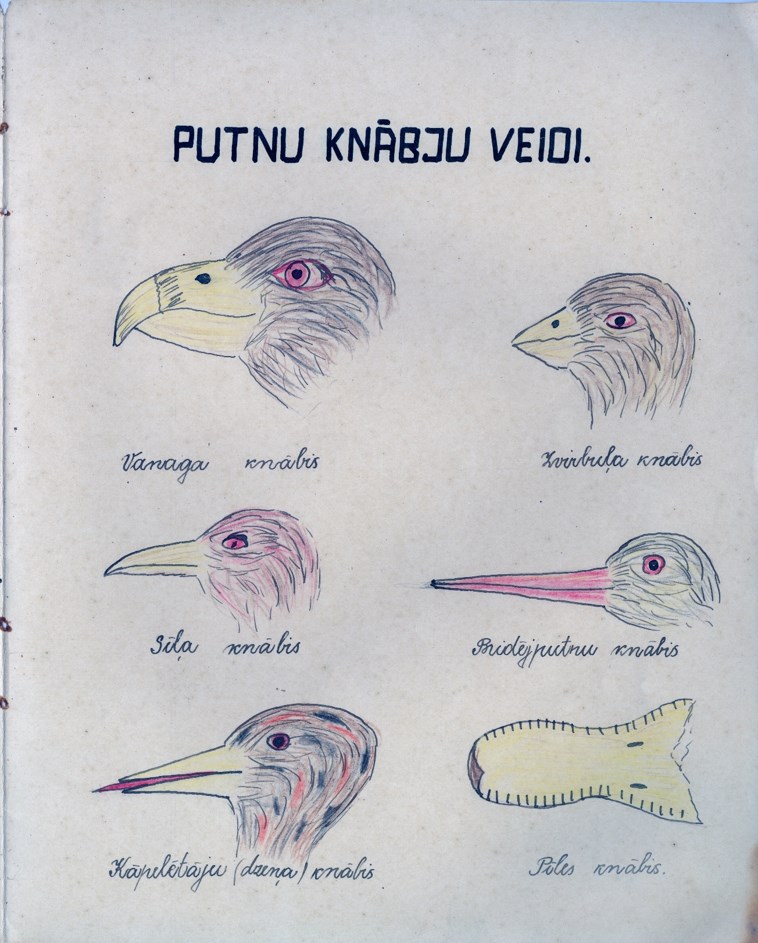 PUTNU KNĀBJU VEIDI.
Vanaga knābis
Zvirbuļa knābis
Sīļa knābis
Bridējputnu knābis
Kāpelētāju (dzeņa) knābis
Pīles knābis.